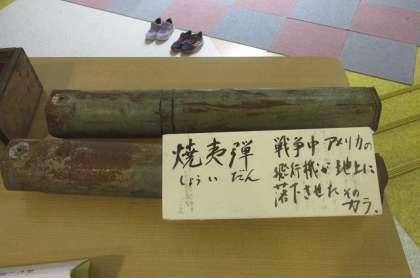 焼夷弾
しょういだん
戦争中アメリカの
飛行機が地上に
落下させたその
カラ、